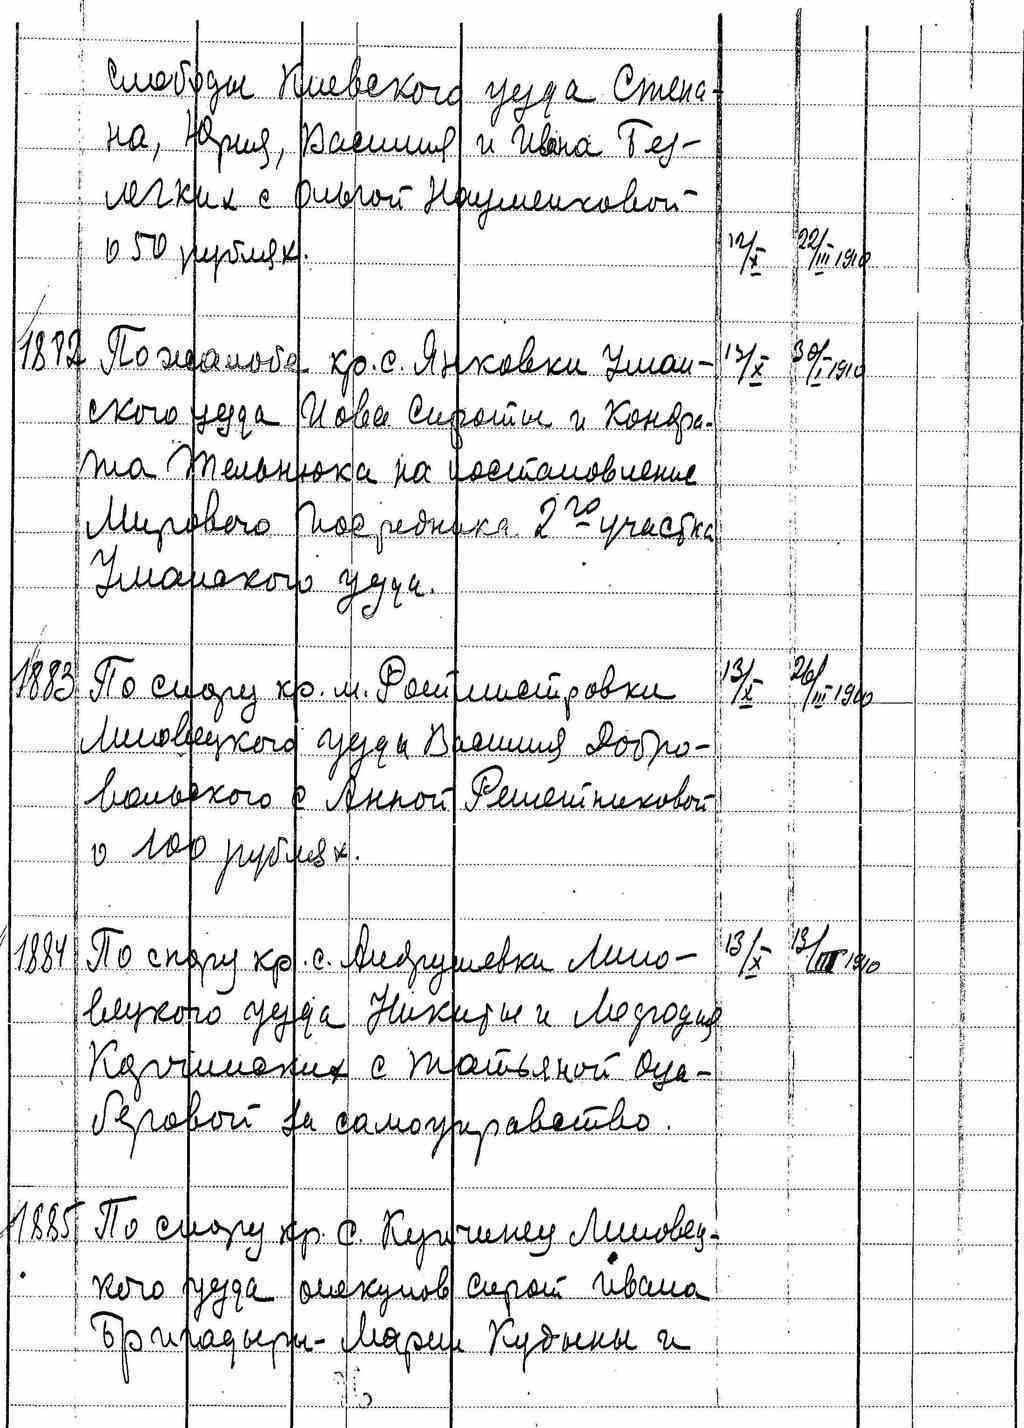 слободы Киевского уезда Степа-
на, Юрия, Василия и Ивана Без-
легких с Ольгой Науменковой
о 50 рублях. 12/X 22/III 1910
1882 По жалобе кр. с. Янковки Уман- 12/X 30/I 1910
ского уезда Иова Сироты и Кондра-
та Мельнюка на постановление
Мирового Посредника 2го участка
Уманского уезда.
1883 По спору кр. м. Ротмистровки 13/X 26/III 1910
Липовецкого уезда Василия Добро-
вольского с Анной Решетниковой
о 100 рублях.
1884 По спору кр. с. Андрушевки Липо- 13/X 13/III 1910
вецкого уезда Никиты и
с Татьяной
за самоуправство.
1885 По спору кр. с. Купчинец Липовец-
кого уезда опекунов сирот Ивана
Бригадыры- Марии Кудыны и